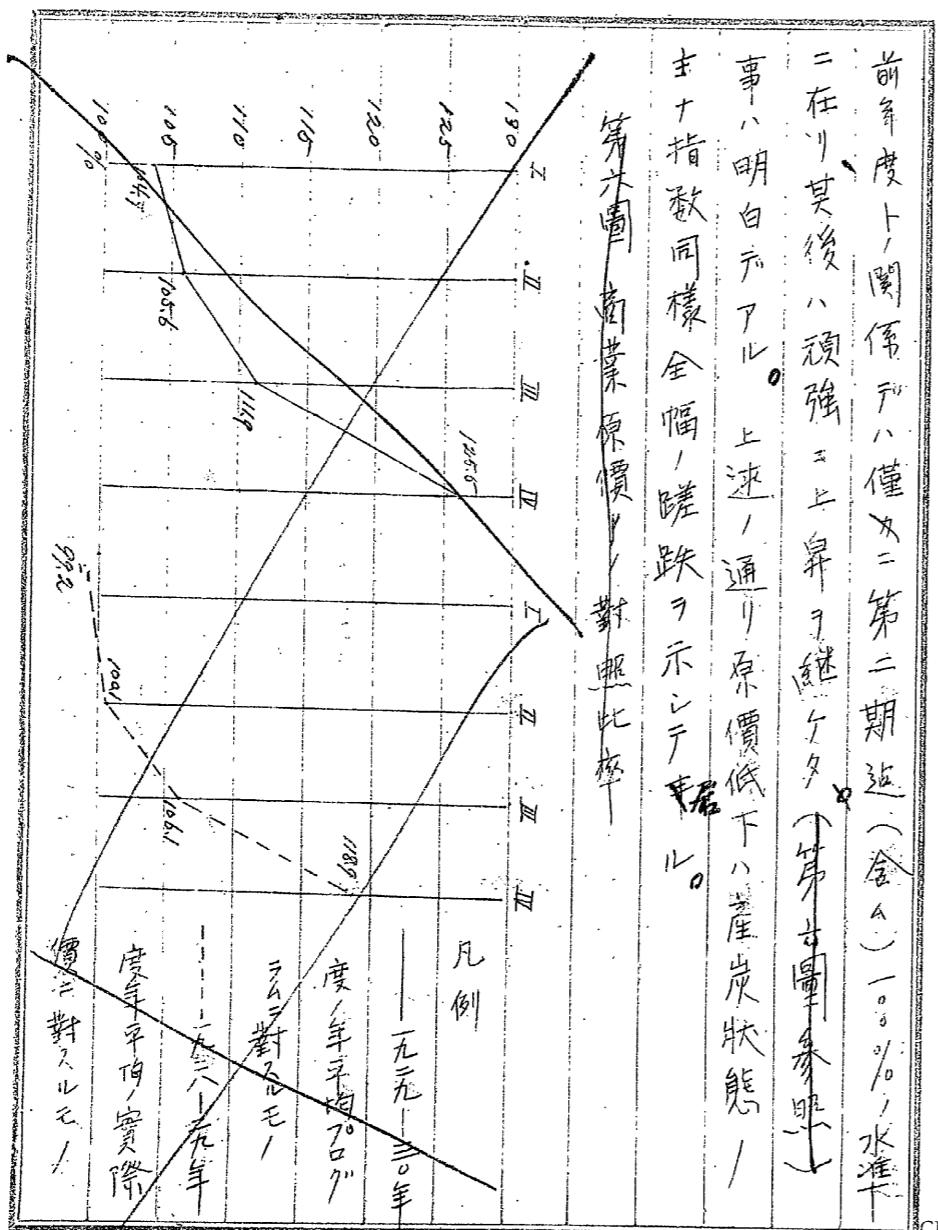 前年度トノ関係デハ僅カニ第二期迠(含ム)一〇〇%ノ水準
ニ在リ其後ハ頑強ニ上昇ヲ継ケタ(第六圖参照)
事ハ明白デアル。上述ノ通リ原價低下ハ産炭狀態ノ
主ナ指数同様全幅ノ蹉跌ヲ示シテ居ル。
第六圖 商業原價ノ對照比率
130
125
120
115
110
105
100%
I
II
III
IV
I
II
III
IV
104.7
105.6
111.9
125.6
99.2
100.1
106.1
118.9
凡例
一九二九—三〇年
度ノ年平均プログ
ラムニ對スルモノ
一九二八—二九年
度年平均ノ實際
價ニ對スルモノ